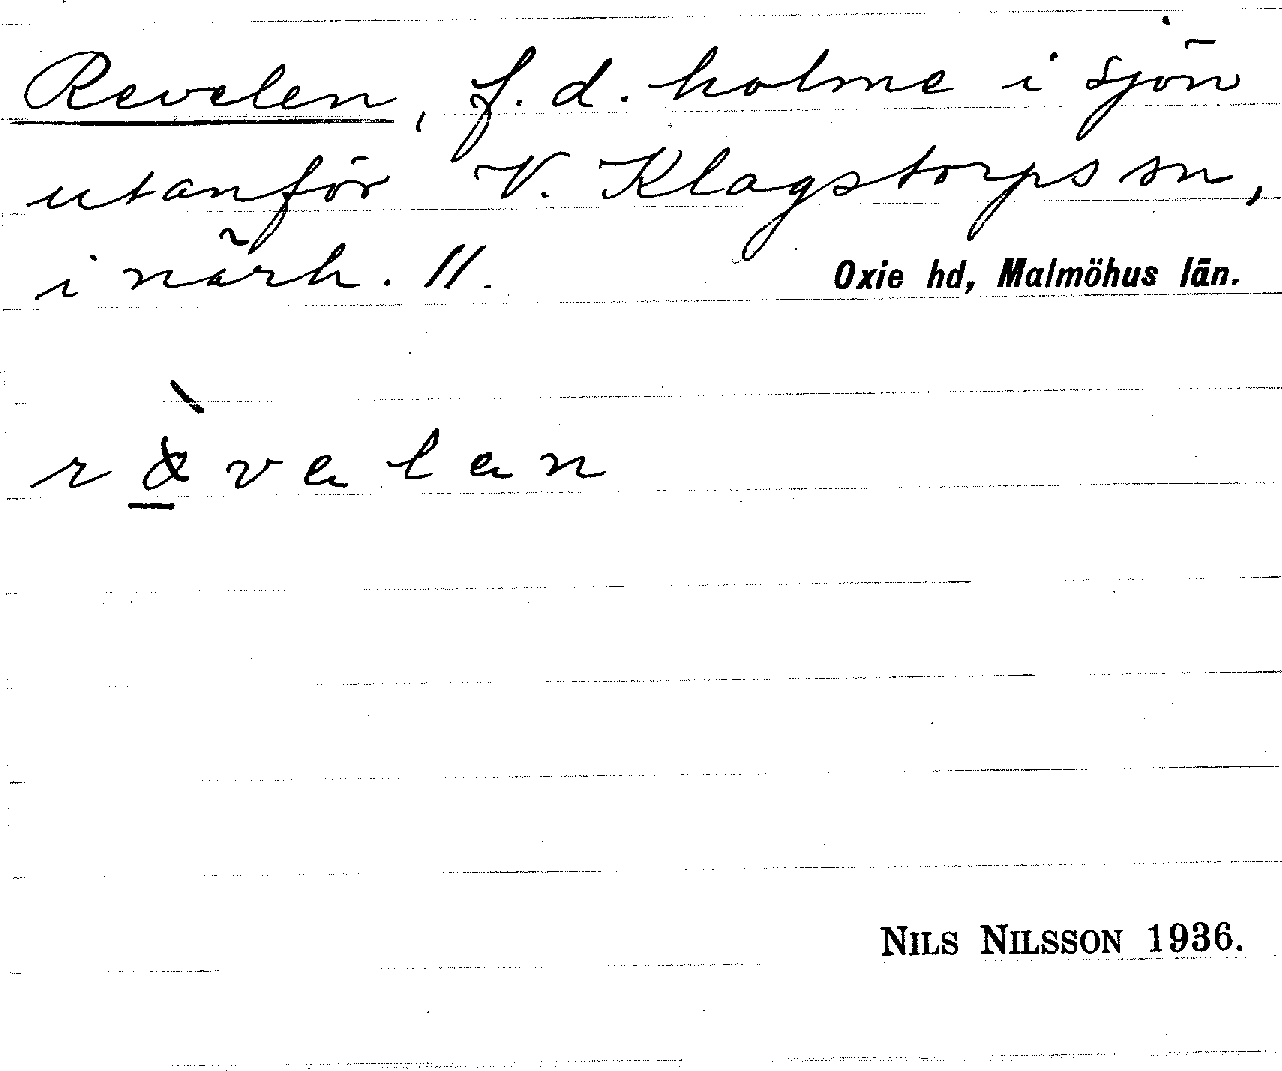 Revelen, f. d. holme i sjön
utanför V. Klagstorps sn,
i närh. 11. Oxie hd, Malmöhus län.
NILS NILSSON 1936.